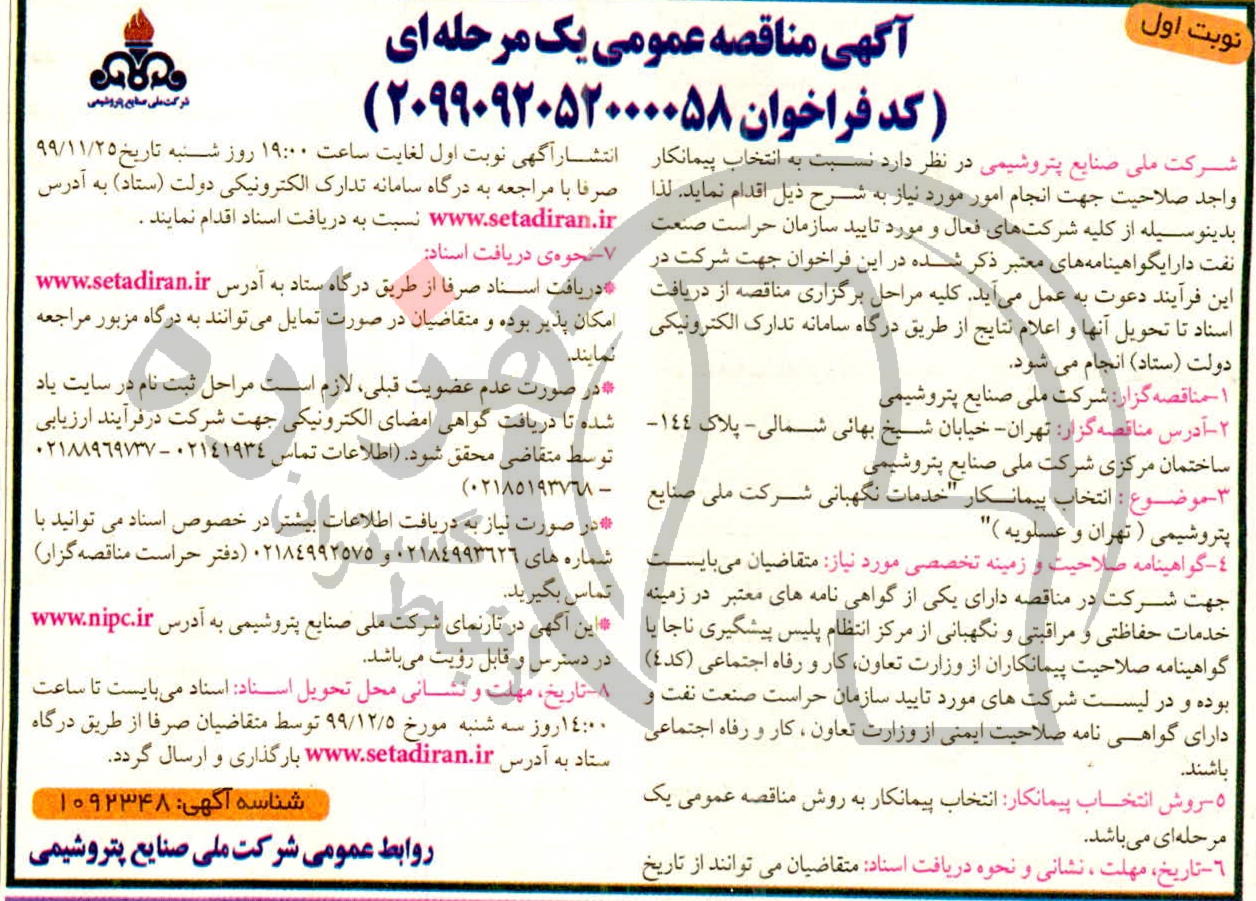 نوبت اول
آگهی مناقصه عمومی یک مرحله ای
( کد فراخوان ۲۰۹۹۰۹۲۰۵۲۰۰۰۰۵۸ )
شرکت ملی صنایع پتروشیمی
شرکت ملی صنایع پتروشیمی در نظر دارد نسبت به انتخاب پیمانکار
واجد صلاحیت جهت انجام امور مورد نیاز به شرح ذیل اقدام نماید. لذا
بدینوسیله از کلیه شرکت‌های فعال و مورد تایید سازمان حراست صنعت
نفت دارایگواهینامه‌های معتبر ذکر شده در این فراخوان جهت شرکت در
این فرآیند دعوت به عمل می‌آید. کلیه مراحل برگزاری مناقصه از دریافت
اسناد تا تحویل آنها و اعلام نتایج از طریق درگاه سامانه تدارک الکترونیکی
دولت (ستاد) انجام می شود.
۱-مناقصه‌گزار: شرکت ملی صنایع پتروشیمی
۲-آدرس مناقصه‌گزار: تهران- خیابان شیخ بهائی شمالی- پلاک ۱۴۴-
ساختمان مرکزی شرکت ملی صنایع پتروشیمی
۳-موضوع : انتخاب پیمانکار "خدمات نگهبانی شرکت ملی صنایع
پتروشیمی ( تهران و عسلویه )"
۴-گواهینامه صلاحیت و زمینه تخصصی مورد نیاز: متقاضیان می‌بایست
جهت شرکت در مناقصه دارای یکی از گواهی نامه های معتبر در زمینه
خدمات حفاظتی و مراقبتی و نگهبانی از مرکز انتظام پلیس پیشگیری ناجا یا
گواهینامه صلاحیت پیمانکاران از وزارت تعاون، کار و رفاه اجتماعی (کد٤)
بوده و در لیست شرکت های مورد تایید سازمان حراست صنعت نفت و
دارای گواهی نامه صلاحیت ایمنی از وزارت تعاون ، کار و رفاه اجتماعی
باشند.
۵-روش انتخاب پیمانکار: انتخاب پیمانکار به روش مناقصه عمومی یک
مرحله‌ای می‌باشد.
۶-تاریخ، مهلت ، نشانی و نحوه دریافت اسناد: متقاضیان می توانند از تاریخ
انتشارآگهی نوبت اول لغایت ساعت ۱۹:۰۰ روز شنبه تاریخ۹۹/۱۱/۲۵
صرفا با مراجعه به درگاه سامانه تدارک الکترونیکی دولت (ستاد) به آدرس
www.setadiran.ir نسبت به دریافت اسناد اقدام نمایند .
۷-نحوه‌ی دریافت اسناد:
*دریافت اسناد صرفا از طریق درگاه ستاد به آدرس www.setadiran.ir
امکان پذیر بوده و متقاضیان در صورت تمایل می‌توانند به درگاه مزبور مراجعه
نمایند.
*در صورت عدم عضویت قبلی، لازم است مراحل ثبت نام در سایت یاد
شده تا دریافت گواهی امضای الکترونیکی جهت شرکت درفرآیند ارزیابی
توسط متقاضی محقق شود. (اطلاعات تماس ۰۲۱٤۱۹۳٤ - ۰۲۱۸۸۹۶۹۷۳۷
- ۰۲۱۸۵۱۹۳۷۶۸)
*در صورت نیاز به دریافت اطلاعات بیشتر در خصوص اسناد می توانید با
شماره های ۰۲۱۸٤۹۹۳۶۲۶ و ۰۲۱۸٤۹۹۲۵۷۵ (دفتر حراست مناقصه‌گزار)
تماس بگیرید.
*این آگهی در تارنمای شرکت ملی صنایع پتروشیمی به آدرس www.nipc.ir
در دسترس و قابل رؤیت می‌باشد.
۸-تاریخ، مهلت و نشانی محل تحویل اسناد: اسناد می‌بایست تا ساعت
۱٤:۰۰روز سه شنبه مورخ ۹۹/۱۲/۵ توسط متقاضیان صرفا از طریق درگاه
ستاد به آدرس www.setadiran.ir بارگذاری و ارسال گردد.
شناسه آگهی: ۱۰۹۲۳۴۸
روابط عمومی شرکت ملی صنایع پتروشیمی
هزاره
گستران
ارتباط